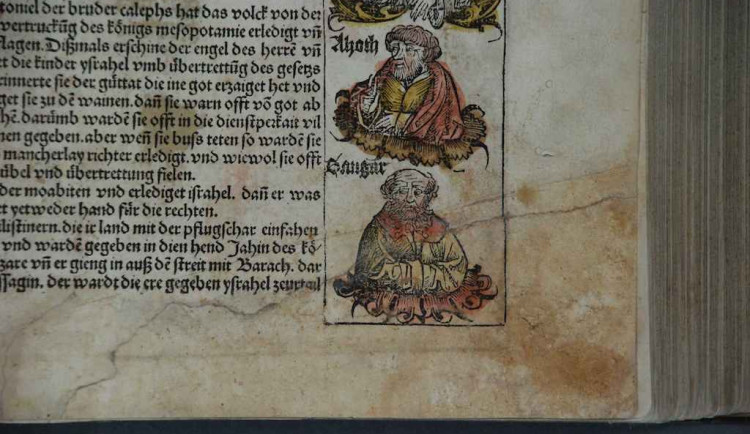 toniel der bruder calephs hat das volck von der
vertruckũg des kőnigs mesopotamie erledigt vñ
flagen. Dißmals erschine der engel des herrẽ vñ
et die kinder ysrahel vmb übertrettũg des gesetzs
rinnerte sie der gůttat die ine got erzaiget het vnd
get sie zu dẽ wainen. dañ sie warn offt võ got ab
hẽ. darůmb wardẽ sie offt in die dienstperkait vil
nen gegeben. aber weñ sie buss teten so wardẽ sie
mancherlay richter erledigt. vnd wiewol sie offt
übel vnd übertrettung fielen.
der moabiten vnd erlediget israhel. dañ er was
et yetweder hand für die rechten.
ilistinern. die ir land mit der pflugschar einfahen
vnd wardẽ gegeben in dien hend Jahin des kő-
zare vñ er gieng in auß dẽ streit mit Barach. dar
ssagin. der wardt die ere gegeben ysrahel zeurtail
Ahoth
Sangar